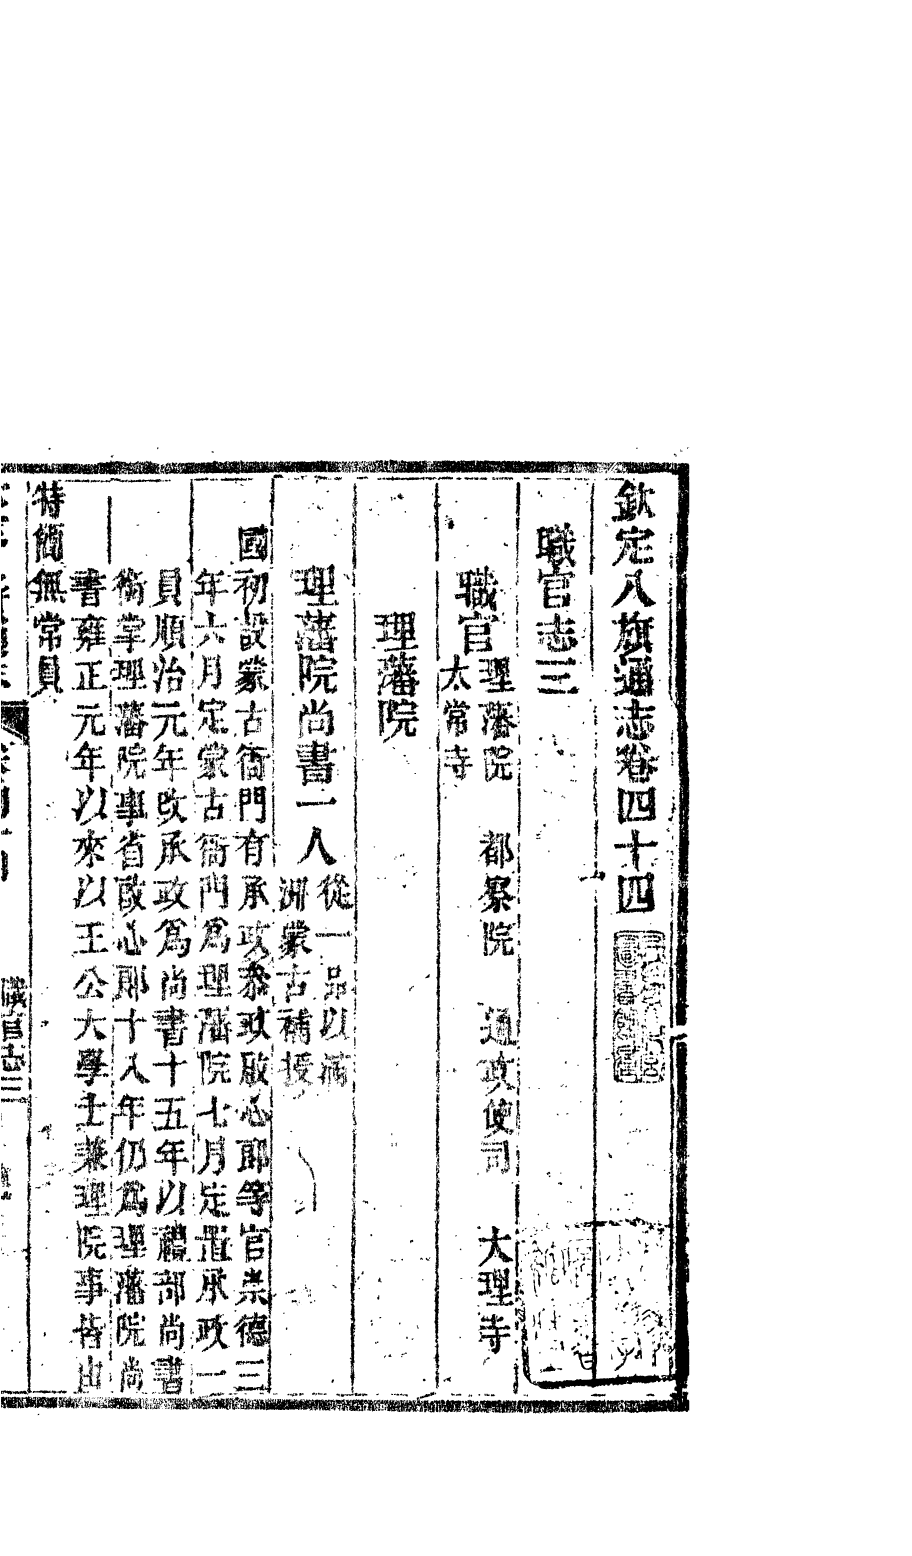 欽定八旗通志卷四十四
職官志三
職官
理藩院　都察院　通政使司　大理寺
太常寺
理藩院
理藩院尚書一人
從一品以滿
洲蒙古補授
國初設蒙古衙門有承政叅政啟心郎等官崇德三
年六月定蒙古衙門爲理藩院七月定置承政一
員順治元年改承政爲尚書十五年以禮部尚書
銜掌理藩院事省啟心郎十八年仍爲理藩院尚
書雍正元年以來以王公大學士兼理院事皆由
特簡無常員
職官志三